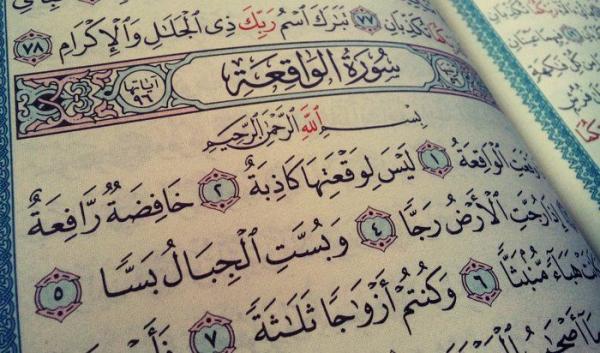 تُكَذِّبَانِ ٧٧ تَبَٰرَكَ ٱسْمُ رَبِّكَ ذِى ٱلْجَلَٰلِ وَٱلْإِكْرَامِ ٧٨
سُورَةُ الْوَاقِعَةِ
آياتها ٩٦
بِسْمِ ٱللَّهِ ٱلرَّحْمَٰنِ ٱلرَّحِيمِ
ٱلْوَاقِعَةُ ١ لَيْسَ لِوَقْعَتِهَا كَاذِبَةٌ ٢ خَافِضَةٌ رَّافِعَةٌ
إِذَا رُجَّتِ ٱلْأَرْضُ رَجًّا ٤ وَبُسَّتِ ٱلْجِبَالُ بَسًّا ٥
هَبَآءً مُّنۢبَثًّا ٦ وَكُنتُمْ أَزْوَٰجًا ثَلَٰثَةً ٧
مَآ أَصْحَٰبُ